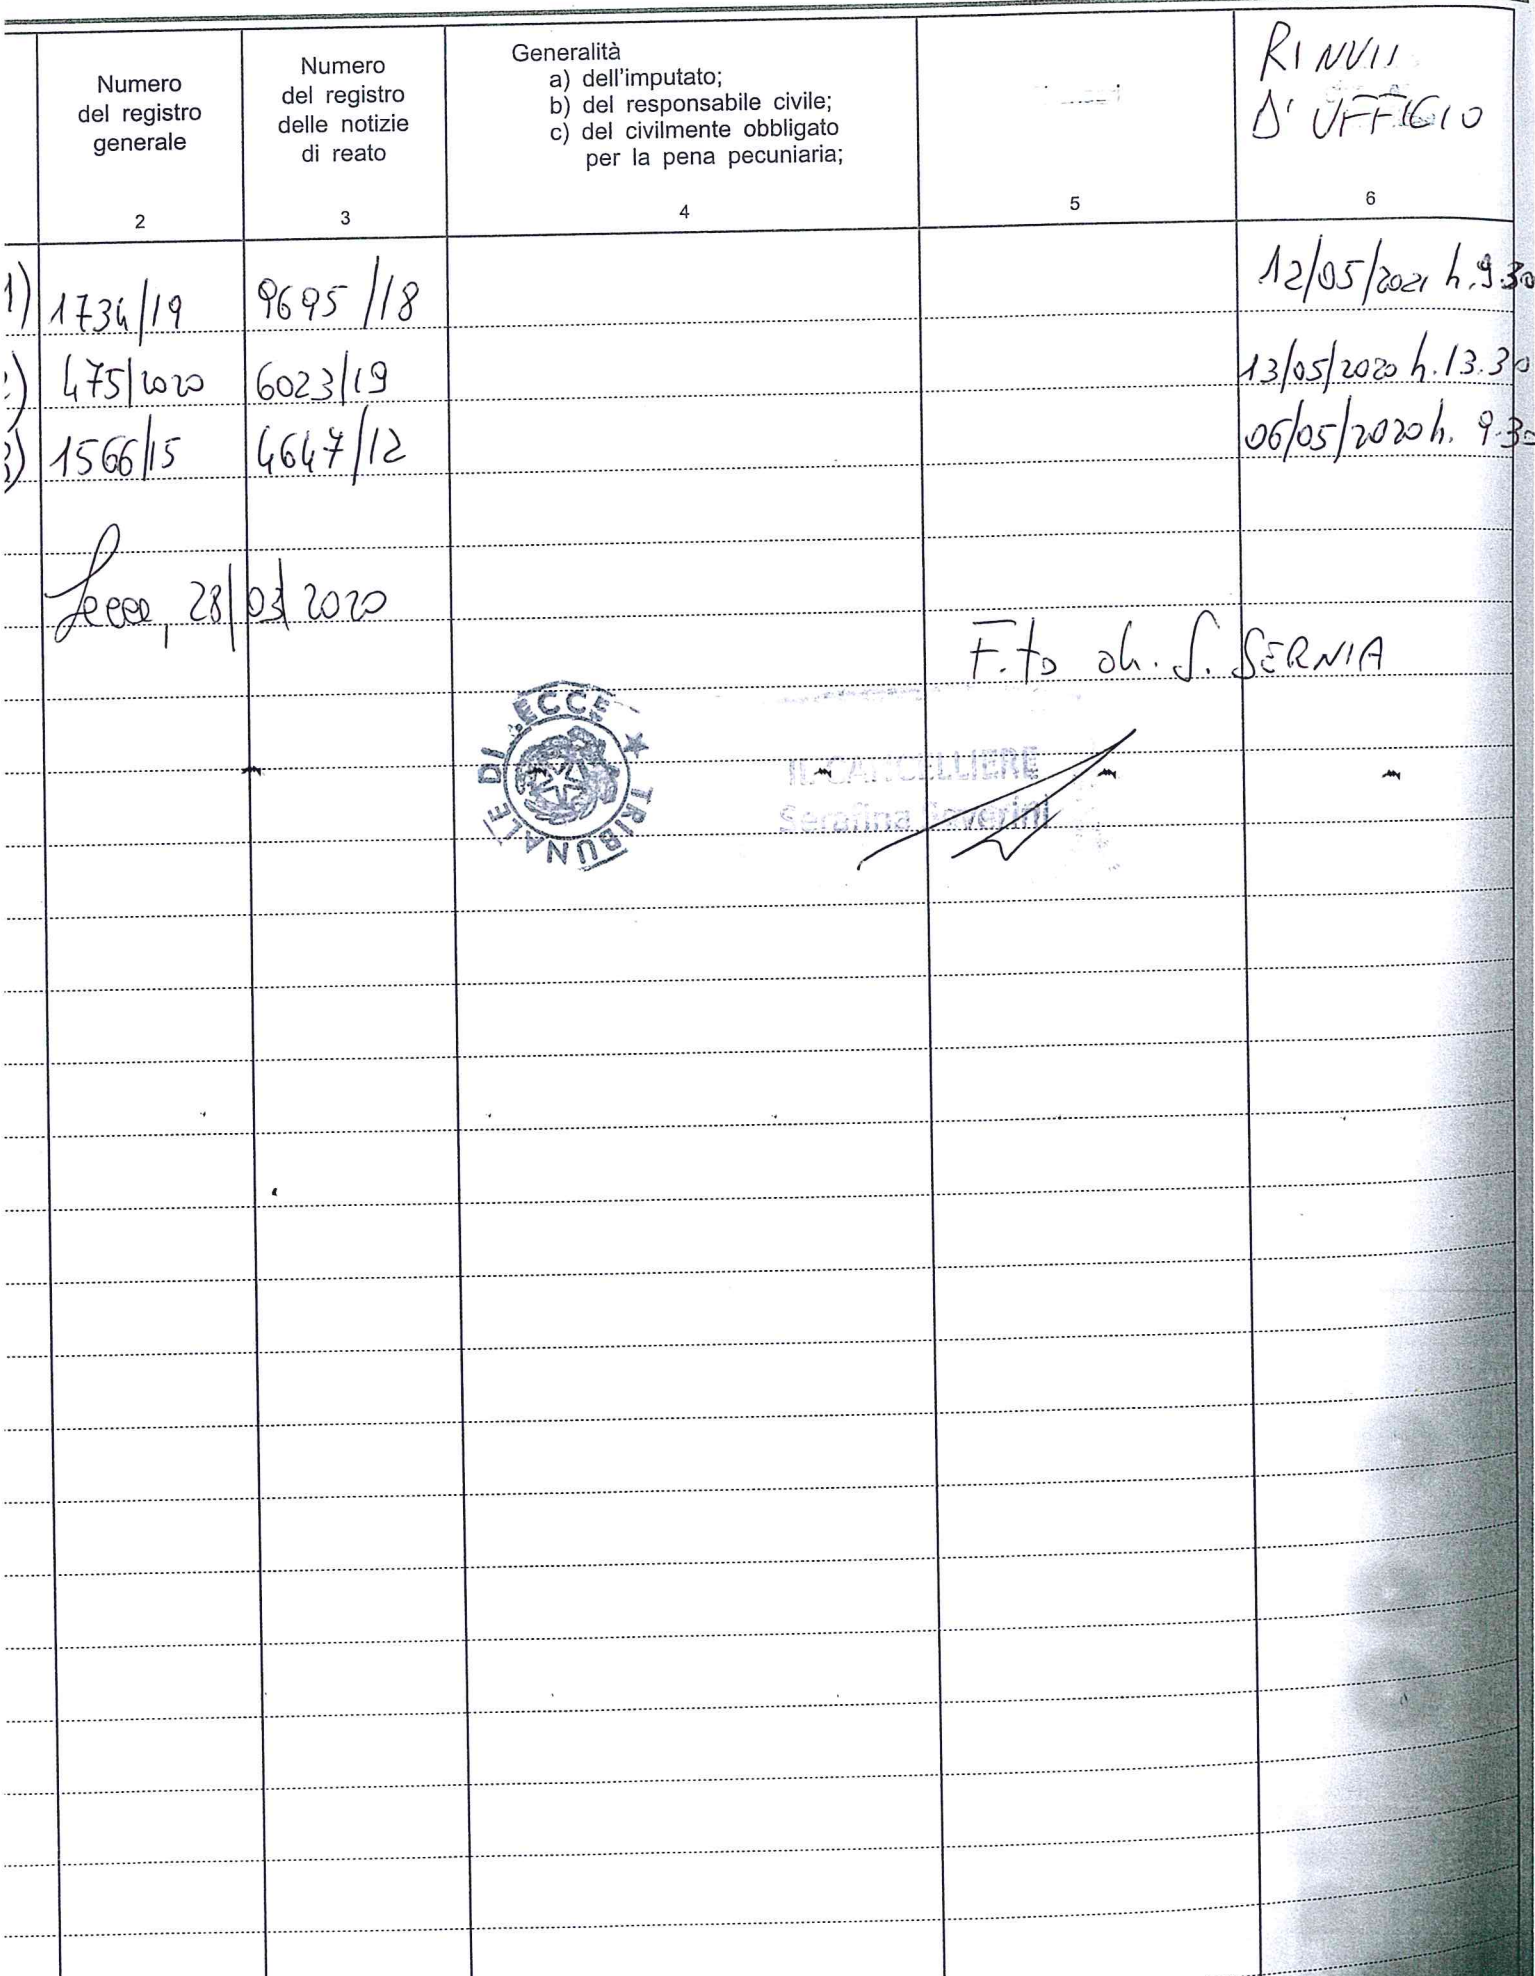 Numero
del registro
generale
2
Numero
del registro
delle notizie
di reato
3
Generalità
a) dell'imputato;
b) del responsabile civile;
c) del civilmente obbligato
per la pena pecuniaria;
4
5
RINVII
D'UFFICIO
6
1) 1734/19 9695/18 12/05/2021 h. 9.30
2) 475/2020 6023/19 13/05/2020 h. 13.30
3) 1566/15 4647/12 06/05/2020 h. 9.30
Lecce, 28/03/2020
F.to dr. S. SERNIA
TRIBUNALE DI LECCE
IL CANCELLIERE
Serafina Saverini